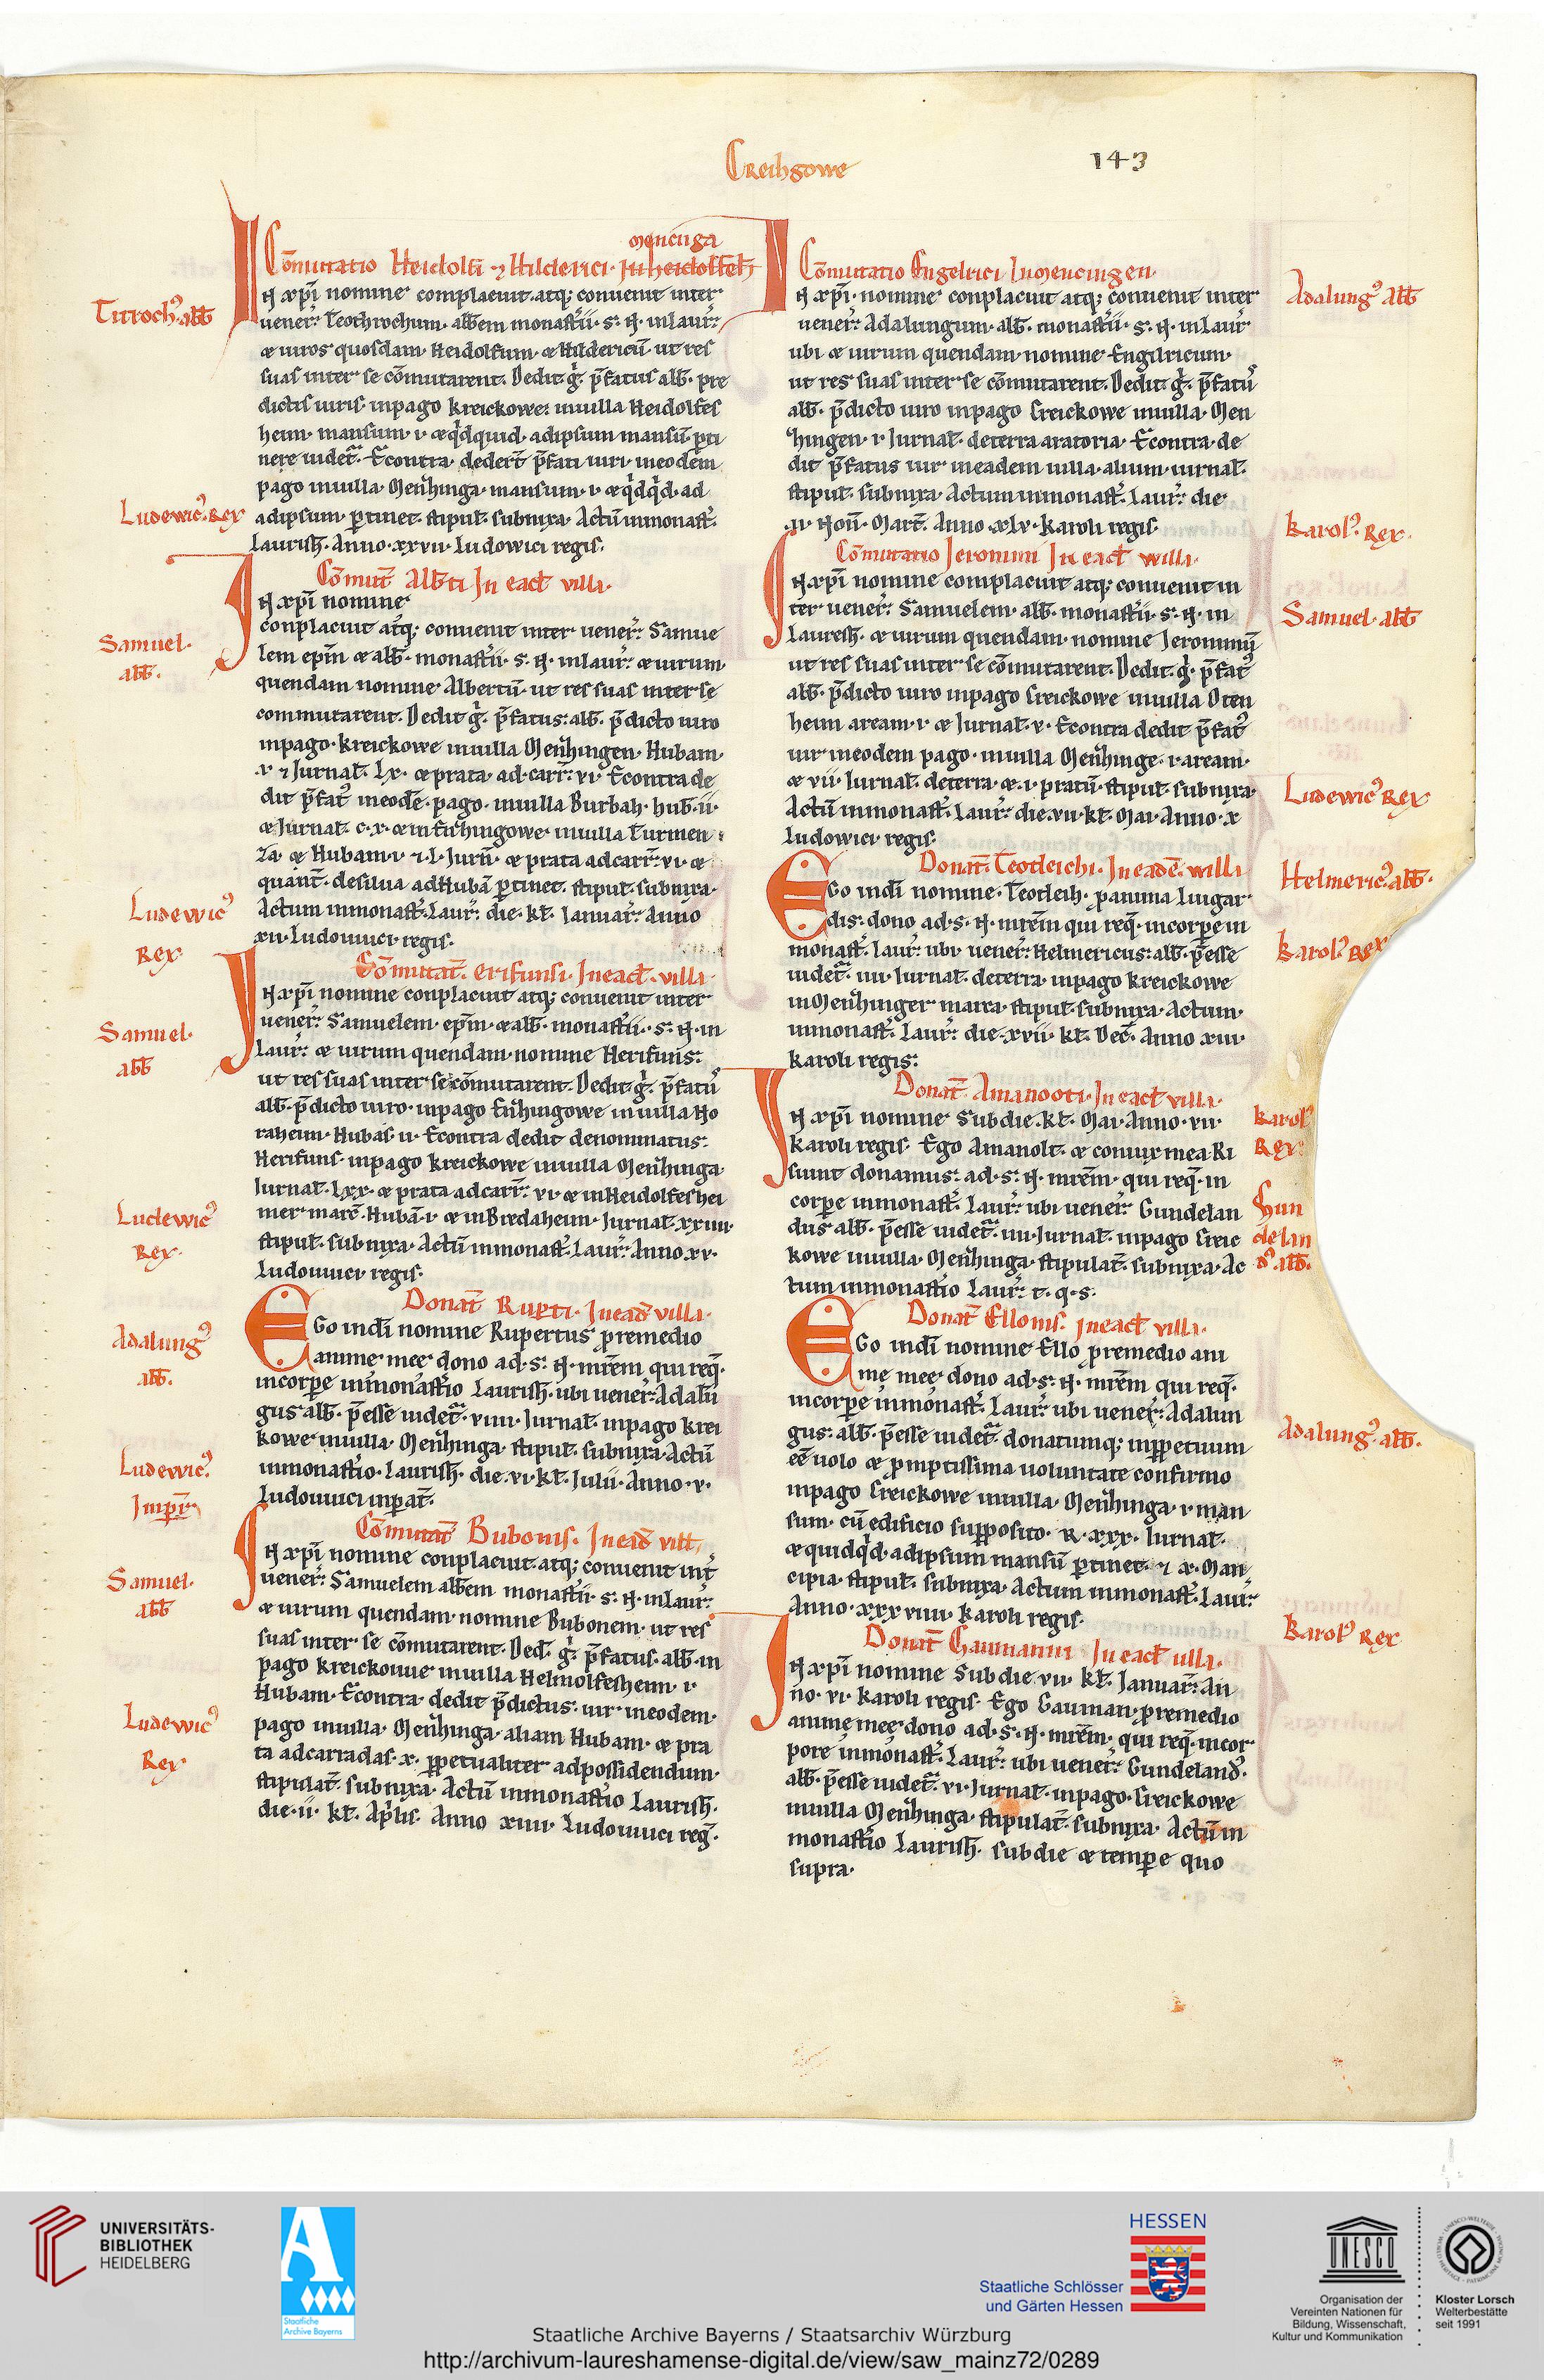 Creihgowe
143
mencinga
Com̄utatio Heidolfi ⁊ Hilderici. In heidolfesh̄
Tittrochꝰ abb̄
N xp̄i nomine complacuit atq; conuenit inter
uener̄. Teothrochum. abb̄em monast̄ii. s. N. inlaur̄.
æ uiros quosdam. Heidolfum. æ Hildericū ut res
suas inter se cōmutarent. Dedit. g̊. p̄fatus abb̄. pre
dictis uiris inpago kreickowe. inuilla Heidolfes
heim. mansum. ı. æ qd̓quid. adipsum mansū ꝑti
nere uidet̄. Econtra. dedert̄ p̄fati uiri ineodem
pago inuilla Men̄hinga. mansum. ı. æ qd̓qd̓. ad
Ludewicꝰ. Rex
adipsum. ꝑtinet. stipul̄. subnixa. Actū inmonast̄.
laurish̄. Anno. xxvıı. Ludowici regis.
Cōmut̄ Alb̄ti In ead̄ villa.
N xp̄i nomine
conplacuit atq; conuenit inter uener̄. Samue
Samuel.
abb̄.
lem ep̄m æ abb̄. monast̄ii. s. N. inlaur̄. æ uirum.
quendam nomine Albertū. ut res suas inter se
commutarent. Dedit g̊. p̄fatus. abb̄. p̄dicto uiro
inpago. kreickowe inuilla Men̄hingen. Hubam.
.ı. ⁊ Jurnal̄. Lx. æ prata. ad. carr̄. vı. Econtra de
dit p̄fatꝰ ineodē. pago. inuilla Burbah. hub̄. ıı.
æ Jurnal̄. c. x. æ in Enhingowe inuilla Turmen
za. æ Hubam. ı. ⁊. L. Jurn̄. æ prata adcarr̄. vı. æ
quant̄. desilua adHubā ꝑtinet. stipul̄. subnixa.
Ludewicꝰ
Rex
Actum inmonast̄. Laur̄. die. kl̄. Januar̄. Anno
xıı. Ludouuici regis.
Cōmutat̄. erifunsi. Inead̄. villa.
N xp̄i nomine conplacuit atq; conuenit inter
uener̄. Samuelem. ep̄m. æ abb̄. monast̄ii. s. N. in
Samuel.
abb̄
Laur̄. æ uirum quendam. nomine Herifuns.
ut res suas inter se cōmutarent. Dedit. g̊. p̄fatꝰ
abb̄. p̄dicto uiro. inpago En̄hingowe inuilla Ho
raheim. Hubas ıı. Econtra dedit denominatus.
Herifuns. inpago kreickowe inuilla Men̄hinga.
Jurnal̄. Lxx. æ prata adcarr̄. vı. æ inHeidolfeshei
mer marc̄. Hubā. ı. æ in Bredaheim. Jurnal̄. xxıııı.
Ludewicꝰ
Rex.
stipul̄. subnixa. Actū inmonast̄. Laur̄. Anno. xv.
Ludouuici regis.
Donat̄ Rup̄ti. Inead̄ villa.
EGo indī nomine Rupertus ꝓremedio
anime mee dono ad. s. N. mr̄em qui req̄.
Adalungꝰ
abb̄.
incorꝑe inmonast̄io Laurish̄. ubi uener̄. Adalū
gus abb̄. p̄esse uidet̄. vıııı. Jurnal̄. inpago krei
kowe inuilla. Men̄hinga. stipul̄. subnixa. Actū
Ludewicꝰ.
Imper̄
inmonast̄io. Laurish̄. die. vı. kl̄. Julii. Anno. v.
Ludouuici inꝑat̄.
Cōmutat̄ Bubonis. Inead̄ vill̄.
N xp̄i nomine conplacuit. atq; conuenit int̄
uener̄. Samuelem abb̄em monast̄ii. s. N. inlaur̄.
Samuel.
abb̄
æ uirum quendam. nomine Bubonem. ut res
suas inter se cōmutarent. Ded̄. g̊. p̄fatus. abb̄. in
pago kreickouue inuilla Helmolfesheim. ı.
Hubam. Econtra. dedit p̄dictus. uir. ineodem.
Ludewicꝰ
Rex.
pago inuilla. Men̄hinga. aliam Hubam. æ pra
ta adcarradas. x. ꝑpetualiter adpossidendum.
stipulat̄. subnixa. Actū inmonast̄io Laurish̄.
die. ıı. kl̄. Ap̄lis. Anno xıııı. Ludouuici reḡ.
Cōmutatio Engelrici Inmencingen.
N xp̄i. nomine conplacuit atq; conuenit inter
Adalungꝰ abb̄
uener̄. Adalungum. abb̄. monast̄ii. s. N. inlaur̄
ubi æ uirum quendam. nomine Engilricum.
ut res suas inter se cōmutarent. Dedit. g̊. p̄fatꝰ
abb̄. p̄dicto uiro inpago Creickowe inuilla. Men
hingen. ı. Jurnal̄. deterra aratoria. Econtra. de
dit p̄fatus uir ineadem uilla. alium. iurnal̄.
stipul̄. subnixa. Actum inmonast̄. Laur̄. die
.ıı. Non̄. Mart̄. Anno. xlv. karoli regis.
Karolꝰ. Rex.
Cōmutatio Jeronimi In ead̄ willa.
N xp̄i nomine complacuit atq; conuenit in
ter uener̄. Samuelem. abb̄. monast̄ii. s. N. in
Samuel. abb̄
Lauresh̄. æ uirum quendam. nomine Jeronimū
ut res suas inter se cōmutarent. Dedit. g̊. p̄fatꝰ
abb̄. p̄dicto uiro inpago Creickowe inuilla Oten
heim aream. ı. æ Jurnal̄. v. Econtra dedit p̄fatꝰ
uir ineodem pago. inuilla Men̄hinge. ı. aream.
æ vıı. Jurnal̄. deterra. æ. ı. pratū. stipul̄. subnixa.
Ludewicꝰ Rex
Actū inmonast̄. Laur̄. die. vıı. kl̄. Mai. Anno. x
Ludowici. regis.
Donat̄. Teotleichi. In eadē. willa
EGo indī nomine. Teotleih. ꝓanima Liugar
Helmericꝰ. abb̄.
dis. dono ad. s. N. mr̄em qui req̄. incorꝑe in
monast̄. Laur̄. ubi uener̄. Helmericus. abb̄. p̄esse
Karolꝰ Rex
uidet̄. ıııı. Jurnal̄. deterra. inpago kreickowe
inMen̄hinger marca. stipul̄. subnixa. Actum.
inmonast̄. Laur̄. die. xvıı. kl̄. Dec̄. Anno xııı.
karoli regis.
Donat̄. Amanooti. In ead̄ villa.
N xp̄i nomine Sub die. kl̄. Mai. Anno. vıı.
Karolꝰ
Rex.
karoli regis. Ego Amanolt. æ coniux mea Ri
suint donamus. ad. s. N. mr̄em. qui req̄. in
corꝑe inmonast̄. Laur̄. ubi uener̄. Gundelan
Gun
delan
dꝰ. abb̄.
dus abb̄. p̄esse uidet̄. ıııı. Jurnal̄. inpago Creic
kowe inuilla. Men̄hinga. stipulat̄. subnixa. Ac
tum inmonast̄io Laur̄. t. q. s.
Donat̄ Ellonis. Inead̄ villa.
EGo indī nomine Ello ꝓremedio ani
me mee dono ad. s. N. mr̄em qui req̄.
incorꝑe inmonast̄. Laur̄. ubi uener̄. Adalun
Adalungꝰ. abb̄.
gus. abb̄. p̄esse uidet̄. donatumq; inꝑpetuum
eē uolo æ ꝓmptissima uoluntate confirmo
inpago Creickowe inuilla. Men̄hinga. ı. man
sum. cū edificio supposito. &. xxx. Jurnal̄.
æ quidqd̓. adipsum mansū ꝑtinet. ⁊ x. Man
cipia. stipul̄. subnixa. Actum inmonast̄. Laur̄.
Anno. xxxvıııı. karoli regis.
Karolꝰ Rex
Donat̄ Gaumanni In ead̄ uilla.
N xp̄i nomine Sub die vıı. kl̄. Januar̄. An
no. vı. karoli regis. Ego Gauman. ꝓremedio
anime mee dono ad. s. N. mr̄em. qui req̄. incor
pore inmonast̄. Laur̄. ubi uener̄. Gundelandꝰ.
abb̄. p̄esse uidet̄. vı. Jurnal̄. inpago. Creickowe
inuilla Men̄hinga. stipulat̄. subnixa. Actū in
monast̄io Laurish̄. sub die æ temꝑe quo
supra.
UNIVERSITÄTS-
BIBLIOTHEK
HEIDELBERG
Staatliche
Archive Bayerns
HESSEN
Staatliche Schlösser
und Gärten Hessen
UNESCO
Organisation der
Vereinten Nationen für
Bildung, Wissenschaft,
Kultur und Kommunikation
Kloster Lorsch
Welterbestätte
seit 1991
Staatliche Archive Bayerns / Staatsarchiv Würzburg
http://archivum-laureshamense-digital.de/view/saw_mainz72/0289